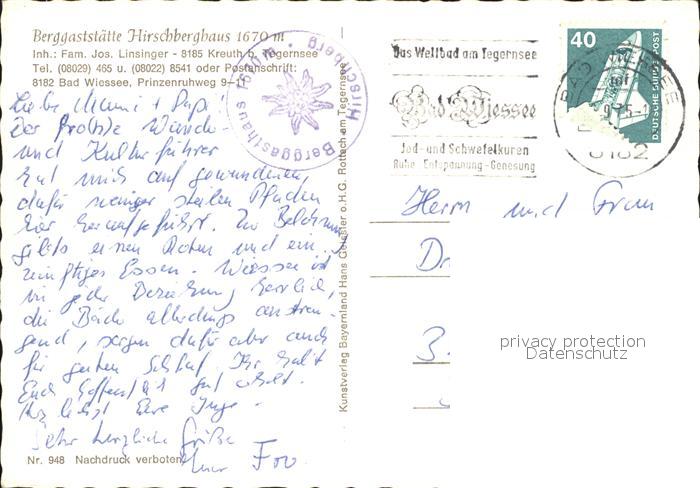 Berggaststätte Hirschberghaus 1670 m
Inh.: Fam. Jos. Linsinger - 8185 Kreuth b. Tegernsee
Tel. (08029) 465 u. (08022) 8541 oder Postanschrift:
8182 Bad Wiessee, Prinzenruhweg 9
Berggasthaus Hirschberg 1670 m
Das Weltbad am Tegernsee
Bad Wiessee
Jod- und Schwefelkuren
Ruhe Entspannung Genesung
40
DEUTSCHE BUNDESPOST
BAD WIESSEE
8182
Liebe Mummi + Papi!
Der Wander-
und Kulturführer
hat mich auf gewundenen,
dafür weniger steilen Pfaden
hier heraufgeführt. Zur Belohnung
gibts einen Roten und ein
zünftiges Essen. Wiessee ist
in jeder Beziehung herrlich,
die Bäder allerdings anstren-
gend, sorgen dafür aber auch
für guten Schlaf. Ihr habt
Euch hoffentlich gut erholt.
Eure Inge.
Sehr herzliche Grüße
Herrn und Frau
Dr
3.
privacy protection
Datenschutz
Kunstverlag Bayernland Hans Geissler o.H.G. Rottach am Tegernsee
Nr. 948 Nachdruck verboten